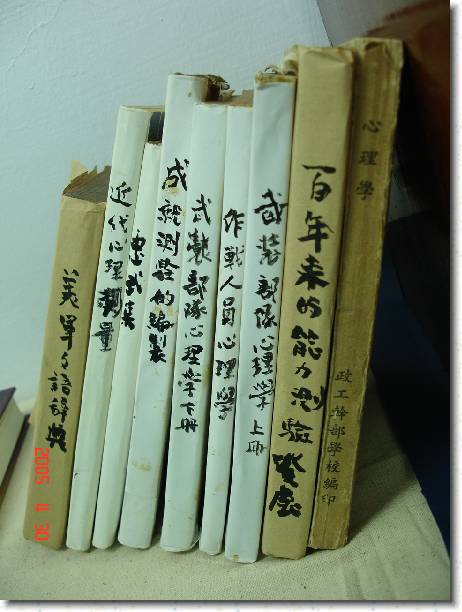 美軍々語辞典
近代心理測量
成就測驗的編製
武裝部隊心理學下冊
作戰人員心理學
武裝部隊心理學上冊
百年来的能力測驗發展
心理學
政工幹部學校編印